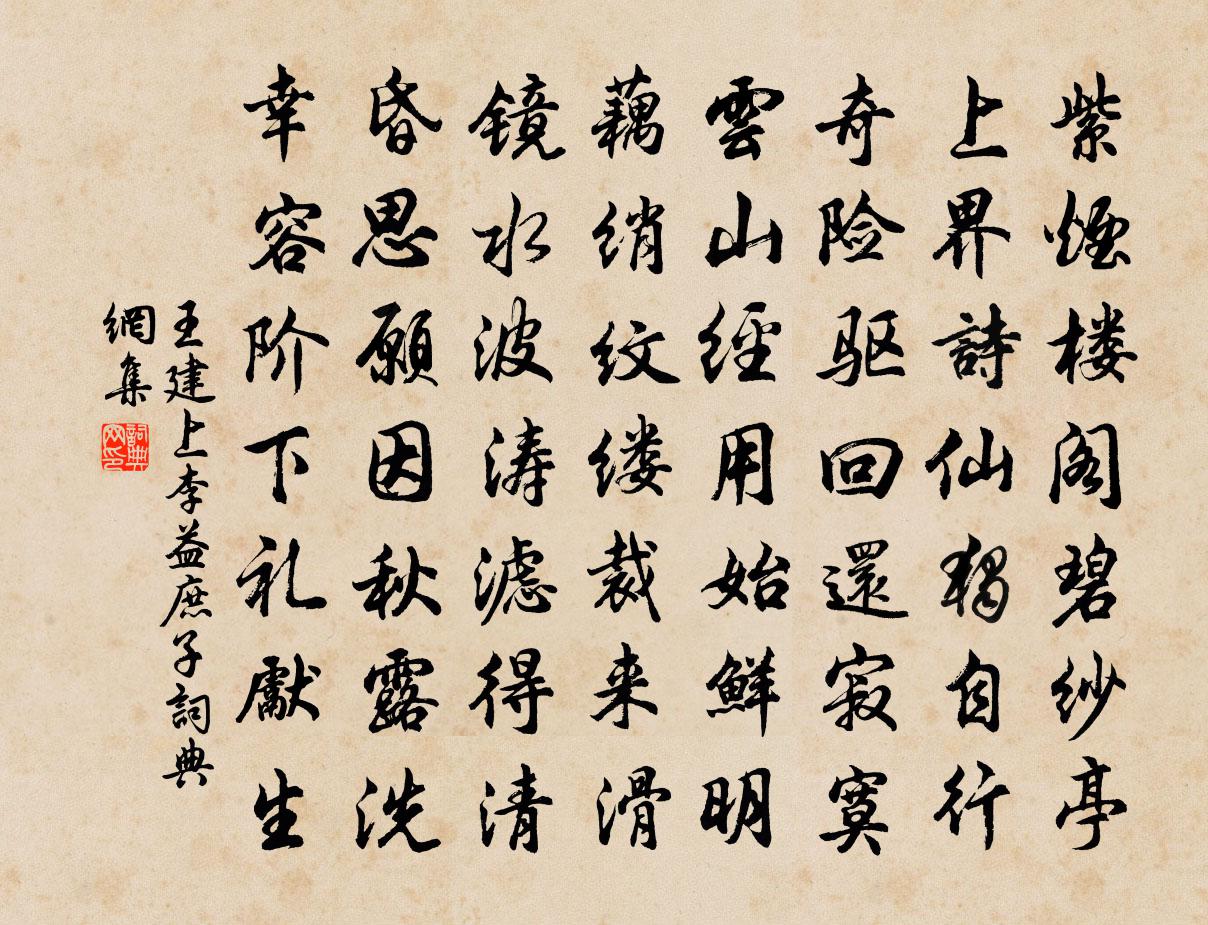 紫煙楼阁碧纱亭
上界詩仙獨自行
奇险驱回還寂寞
雲山經用始鮮明
藕绡纹缕裁来滑
镜水波涛滤得清
昏思願因秋露洗
幸容阶下礼獻生
王建上李益庶子詞典
網集
詞典网印